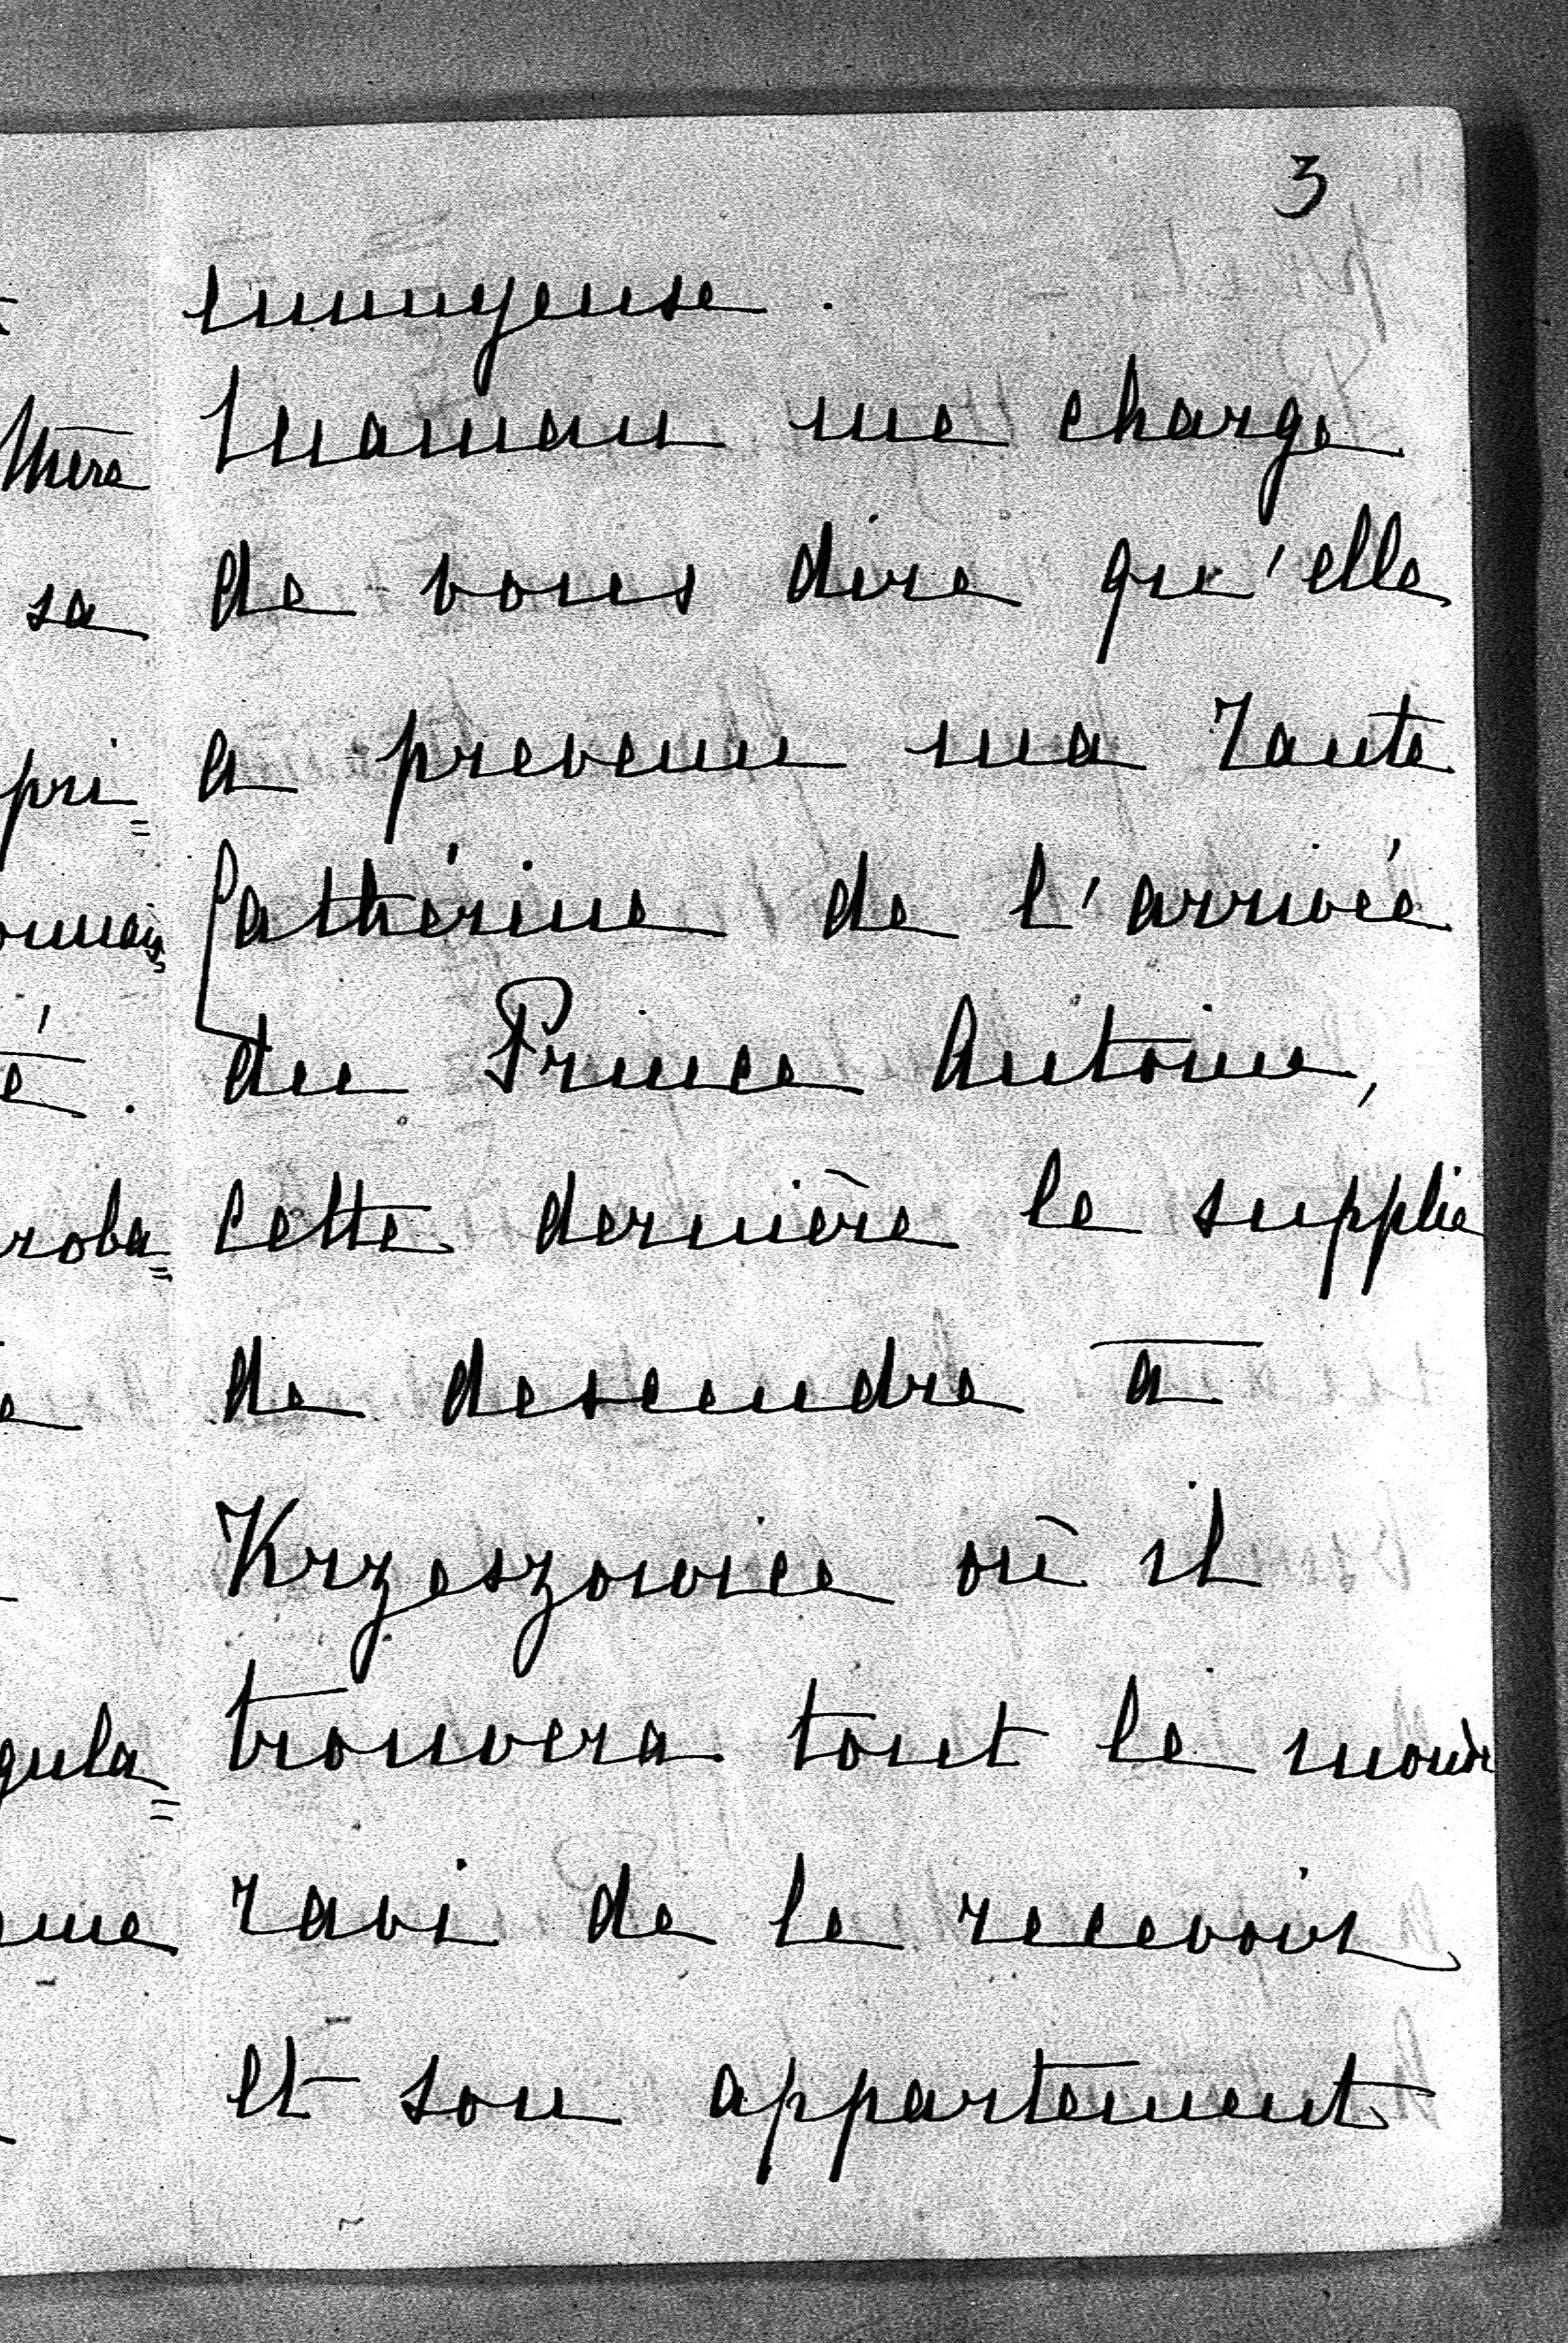 3
ennuyeuse.
Maman me charge
de vous dire qu'elle
a prevenu ma Tante
Cathérine de l'arrivée
du Prince Antoine,
cette dernière le supplie
de descendre à
Krzeszowice où il
trouvera tout le monde
ravi de le recevoir
et son appartement
Mère
sa
pri=
é.
roba=
gula=